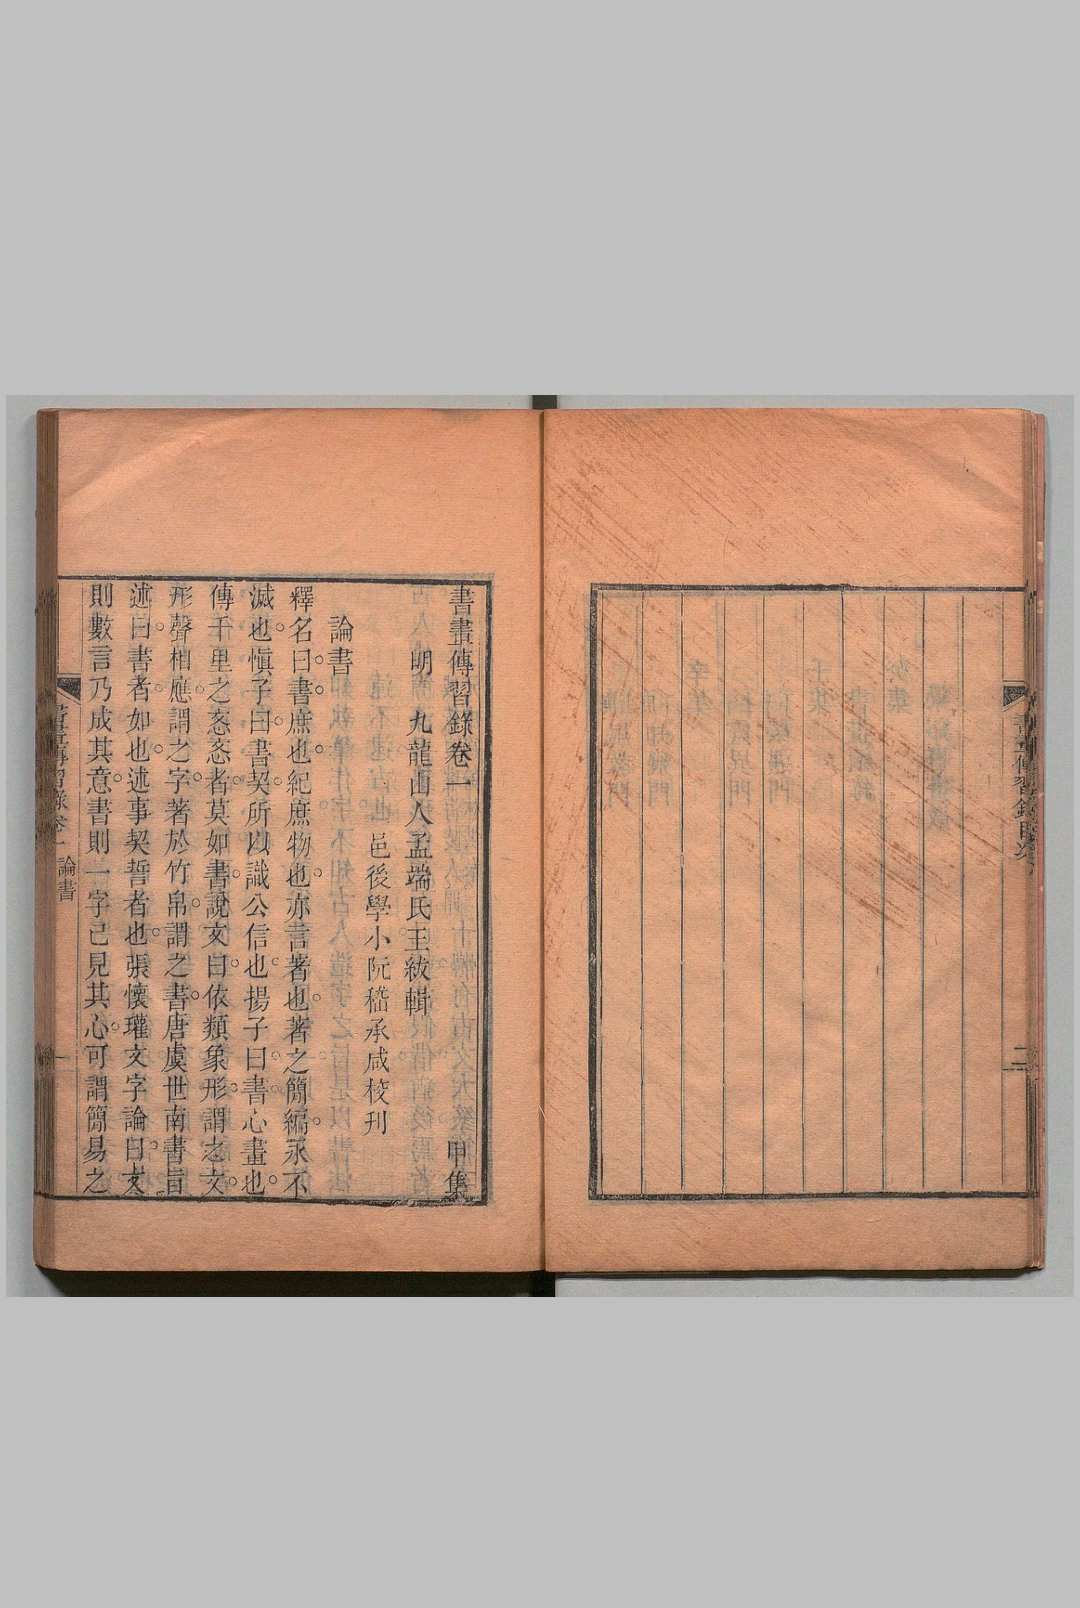 書畫傳習錄目次
二
書畫傳習錄卷一 甲集
明 九龍山人孟端氏王紱輯
邑後學小阮嵇承咸校刊
論書
釋名曰書庶也紀庶物也亦言著也著之簡編永不
滅也愼子曰書契所以識公信也揚子曰書心畫也
傳千里之忞忞者莫如書說文曰依類象形謂之文
形聲相應謂之字著於竹帛謂之書唐虞世南書旨
述曰書者如也述事契誓者也張懷瓘文字論曰文
則數言乃成其意書則一字已見其心可謂簡易之
書畫傳習錄卷一 論書
一